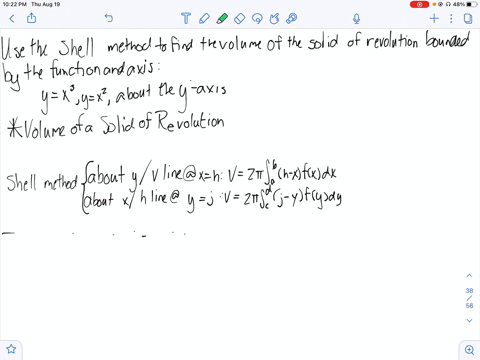 10:22 PM Thu Aug 19
48%
Use the Shell method to find the volume of the solid of revolution bounded
by the function and axis:
y=x³, y=x², about the y-axis
*Volume of a Solid of Revolution
Shell method { about y/v line @ x=h: V = 2π∫ₐᵇ(h-x)f(x)dx
about x/h line @ y=j: V = 2π∫꜀ᵈ(j-y)f(y)dy
38
/
56